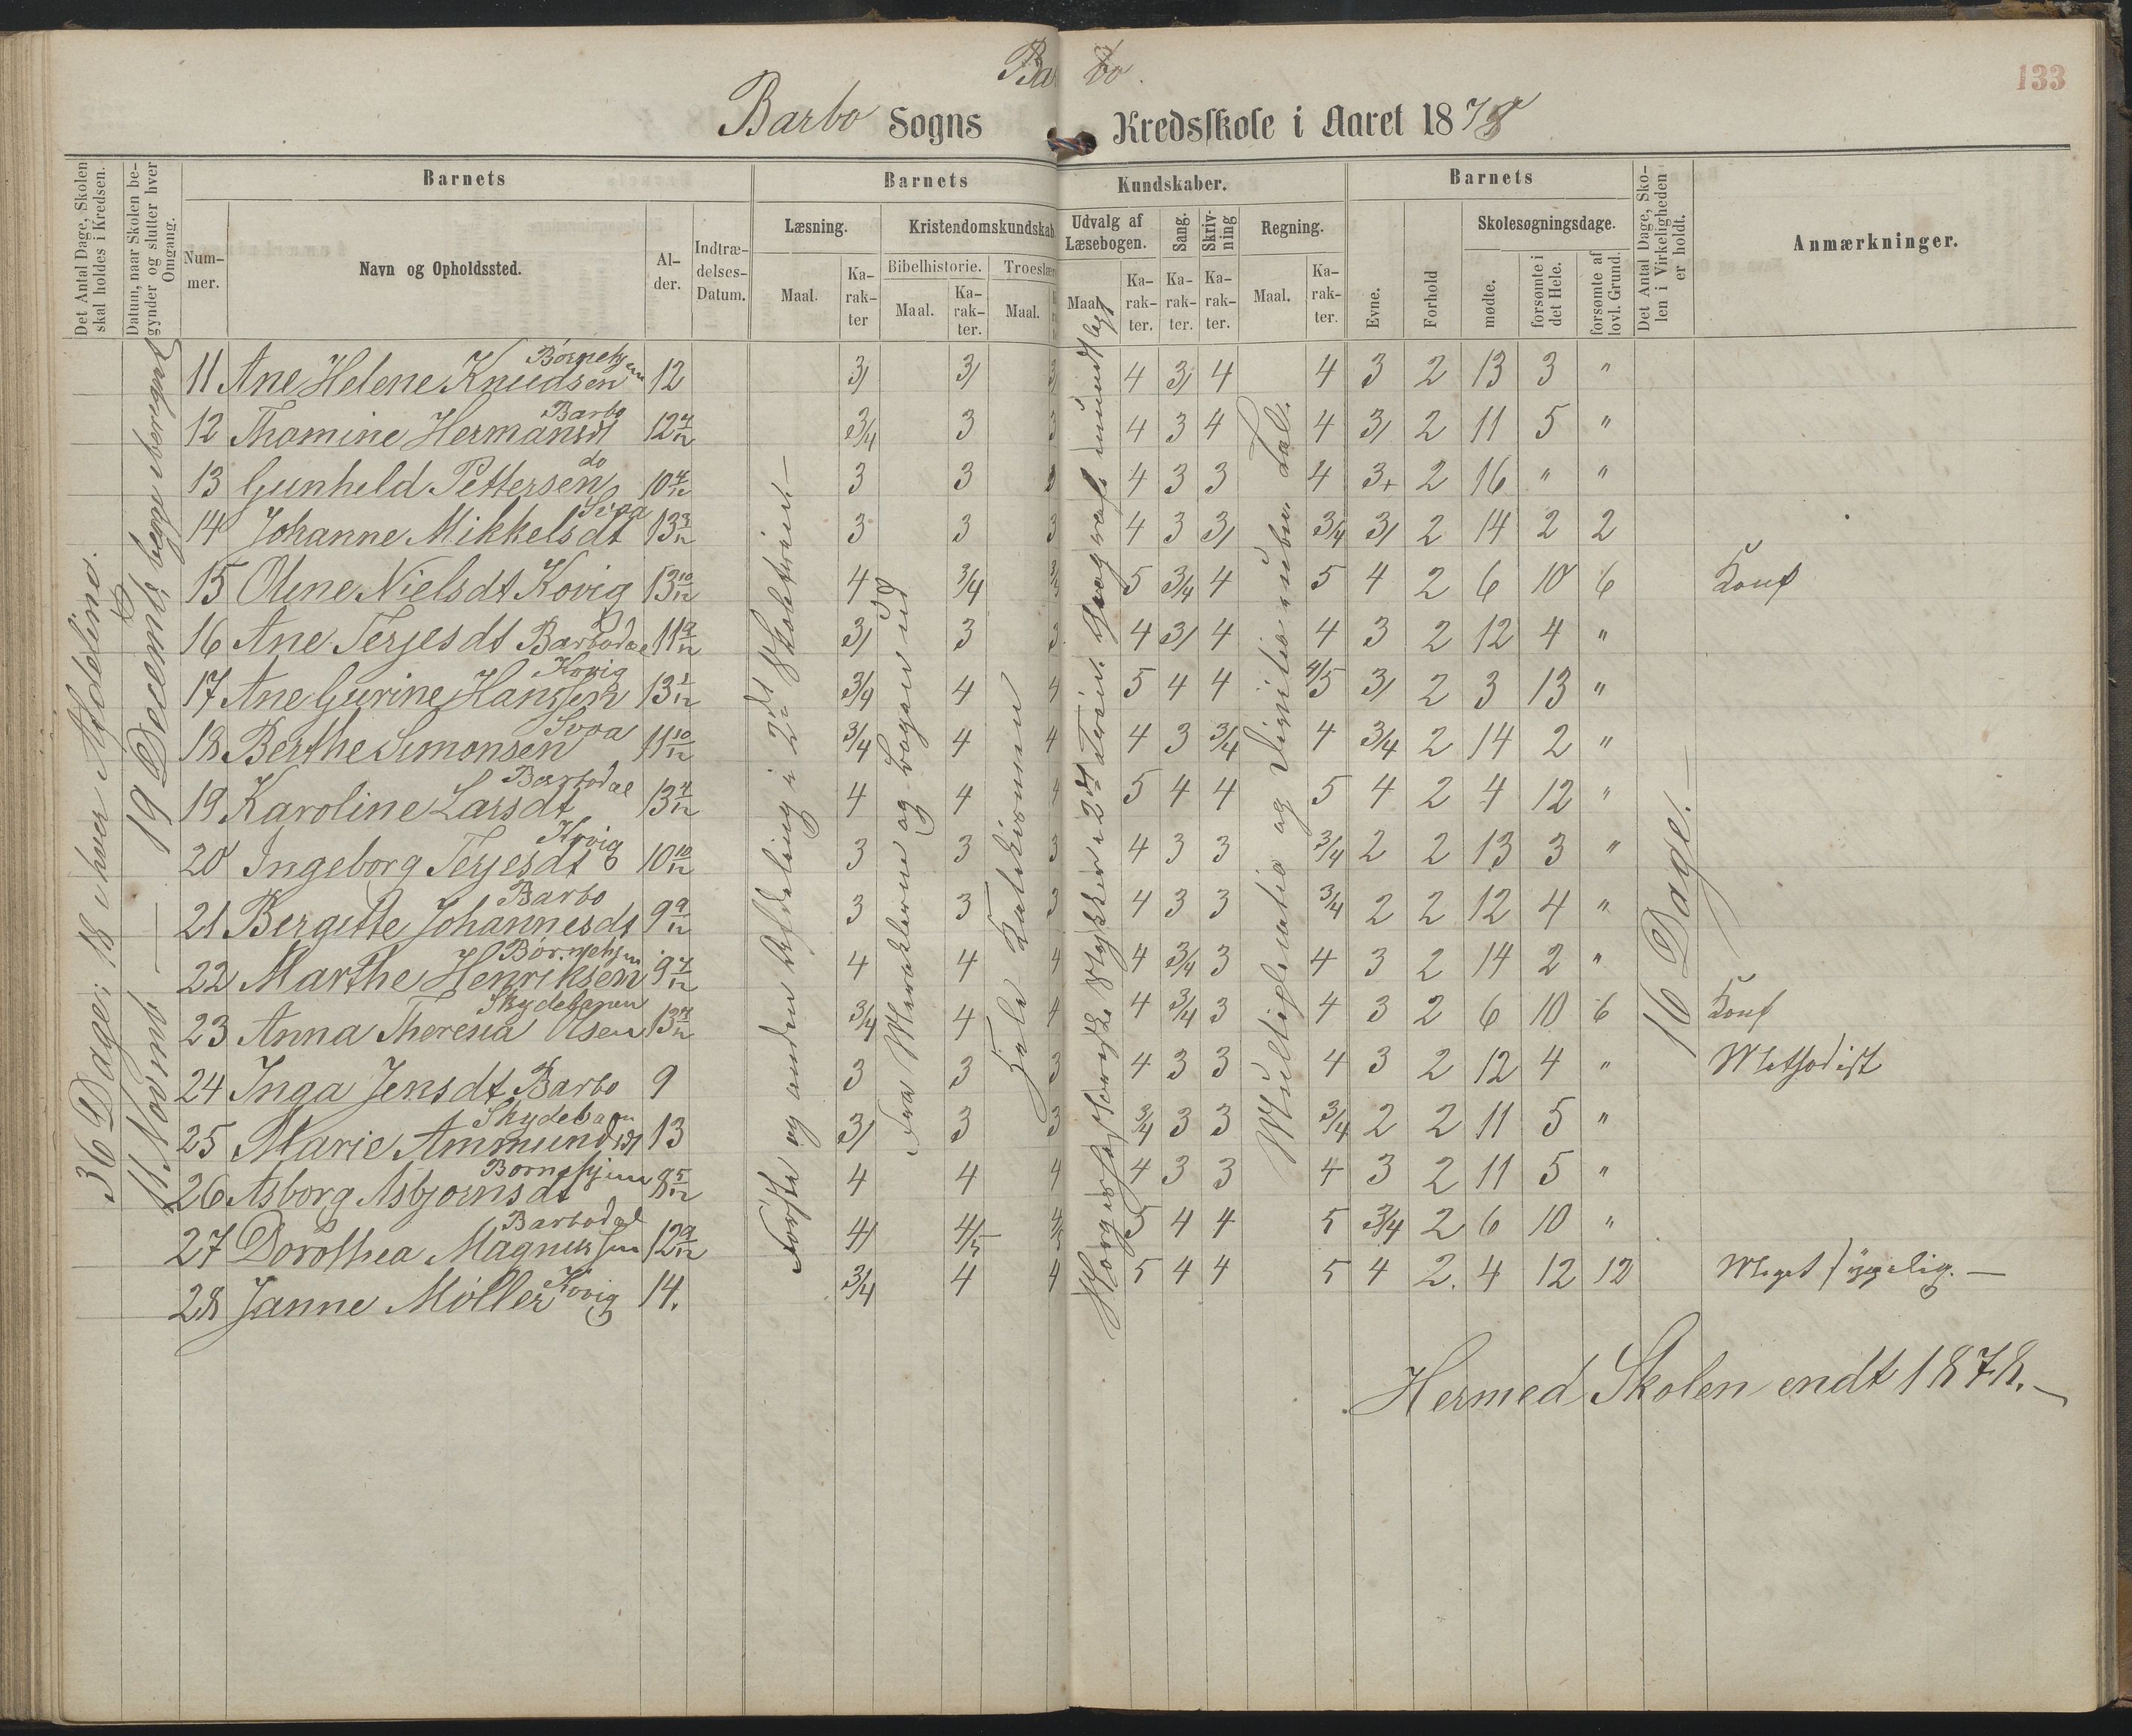 Barbo.
133
Barbo Sogns Kredsskole i Aaret 1878
Det Antal Dage, Skolen skal holdes i Kredsen.
Datum, naar Skolen begynder og slutter hver Omgang.
Barnets
Nummer.
Navn og Opholdssted.
Alder.
Indtrædelses-Datum.
Barnets Kundskaber.
Læsning.
Maal.
Karakter
Kristendomskundskab
Bibelhistorie.
Maal.
Karakter.
Troeslær
Maal.
Udvalg af Læsebogen.
Maal.
Karakter.
Sang.
Karakter.
Skrivning
Karakter.
Regning.
Maal.
Karakter.
Barnets
Evne.
Forhold
Skolesøgningsdage.
mødte.
forsømte i det Hele.
forsømte af lovl. Grund.
Det Antal Dage, Skolen i Virkeligheden er holdt.
Anmærkninger.
36 Dage; 18 i hver Afdeling.
11 Novemb — 19 Decemb; begge iberegnet
Første og anden Afdeling i 2det Skoletrin. —
Fra Miraklerne og Bogen ud
Hele Katekismen
Multiplicatio og Divitio i uben. Tal.
16 Dage. —
11 Ane Helene Knudsen Børnehjem 12 3/ 3/ 3/ 4 3/ 4 4 3 2 13 3 "
12 Thomine Hermansdt Barbo 12 4/12 3/4 3 3 4 3 4 4 3/ 2 11 5 "
13 Gunhild Pettersen do 10 4/12 3 3 3 4 3 3 4 3+ 2 16 " "
14 Johanne Mikkelsdt Svoa 13 3/12 3 3 3 4 3 3/ 3/4 3/ 2 14 2 2
15 Oline Nielsdt Kovig 13 10/12 4 3/4 5 3/4 4 5 4 2 6 10 6 Conf
16 Ane Terjesdt Barbodal 11 9/12 3/ 3 3 4 3/ 4 4 3 2 12 4 "
17 Ane Gurine Hanssen Kovig 13 1/12 3/4 4 4 5 4 4 4/5 3/ 2 3 13 "
18 Berthe Simonsen Svoa 11 10/12 3/4 4 4 4 3 3/4 4 3/4 2 14 2 "
19 Karoline Larsdt Barbodal 13 4/12 4 4 4 5 4 4 5 4 2 4 12 "
20 Ingeborg Terjesdt Kovig 10 10/12 3 3 3 4 3 3 3/4 2 2 13 3 "
21 Bergitte Johannesdt Barbo 9 9/12 3 3 3 4 3 3 3/4 2 2 12 4 "
22 Marthe Henriksen Børnehjem 9 7/12 4 4 4 4 3/4 3 4 3 2 14 2 "
23 Anna Theresia Olsen Skydebanen 13 4/12 3/4 4 4 4 3/4 3 4 3 2 6 10 6 Conf
24 Inga Jensdt Barbo 9 3 3 3 4 3 3 4 3 2 12 4 " Methodist
25 Marie Ammundsdt Skydeban 13 3/ 3 3 3/4 3 3 3/4 2 2 11 5 "
26 Asborg Asbjørnsdt Børnehjem 8 5/12 4 4 4 4 3 3 4 3 2 11 5 "
27 Dorothea Magnussen Barbodal 12 9/12 4/ 4/5 4/5 5 4 4 5 3/4 2 6 10 "
28 Janne Møller Kovig 14. 3/4 4 4 5 4 4 5 4 2. 4 12 12 Meget sygelig. —
Hermed Skolen endt 1878. —